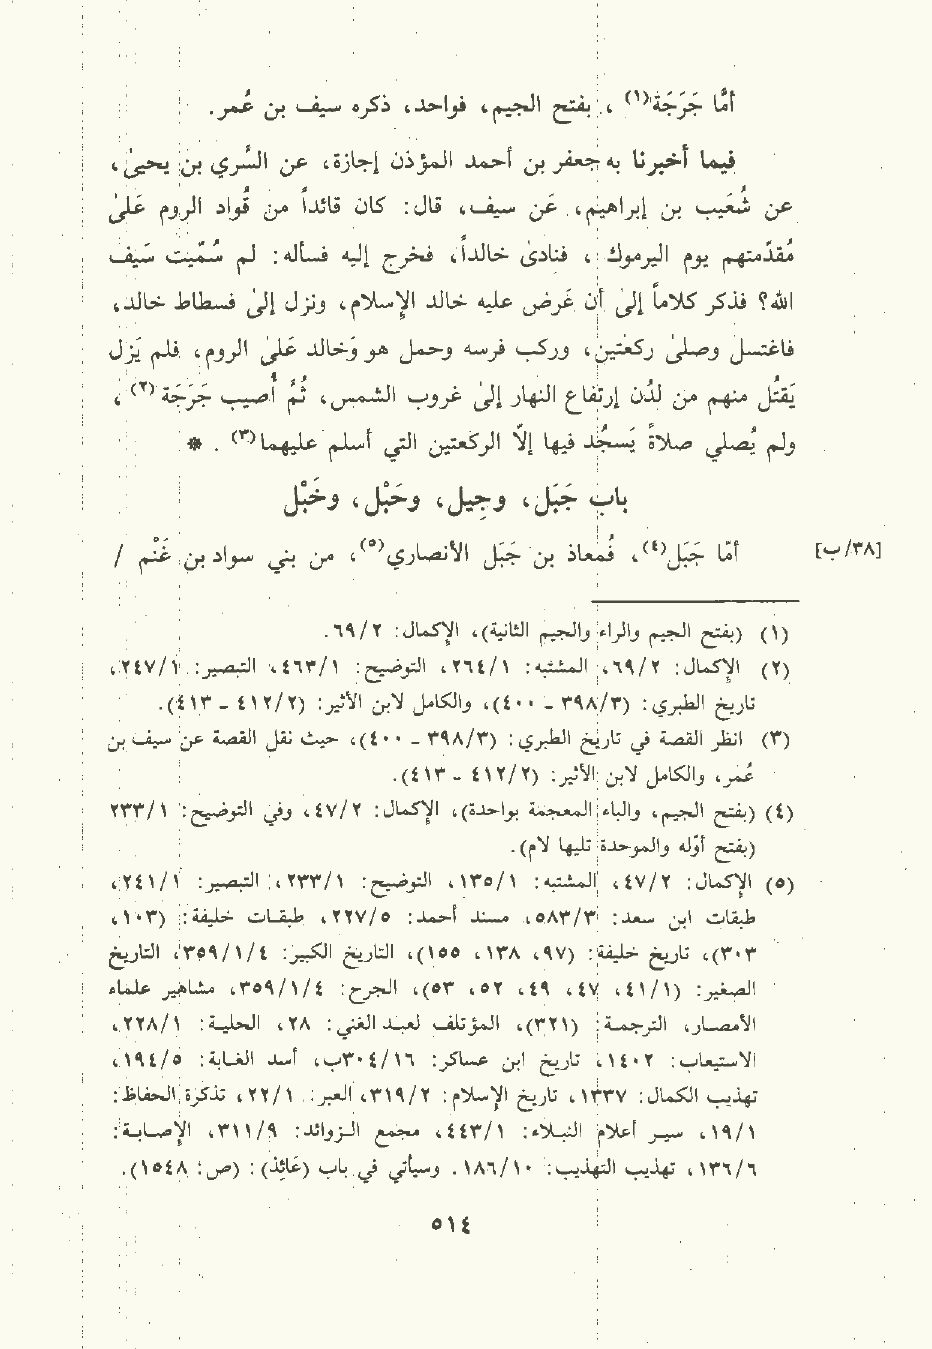 أمَّا جَرَجَة(١) ، بفتح الجيم، فواحد، ذكره سيف بن عُمر.
فيما أخبرنا به جعفر بن أحمد المؤذن إجازة، عن السَّري بن يحيىٰ،
عن شُعَيب بن إبراهيم، عَن سيف، قال: كان قائداً من قُواد الروم عَلىٰ
مُقدّمتهم يوم اليرموك ، فنادىٰ خالداً، فخرج إليه فسأله: لم سُمّيت سَيف
الله؟ فذكر كلاماً إلىٰ أن عَرض عليه خالد الإسلام، ونزل إلىٰ فسطاط خالد،
فاغتسل وصلىٰ ركعتين، وركب فرسه وحمل هو وَخالد عَلىٰ الروم، فلم يَزل
يَقتُل منهم من لدُن إرتفاع النهار إلىٰ غروب الشمس، ثُمَّ أُصيب جَرَجَة(٢) ،
ولم يُصلي صلاةً يَسجُد فيها إلاّ الركعتين التي أسلم عليهما(٣) . *
باب جَبَل، وجِيل، وحَبْل، وخَبْل
[٣٨/ب] أمّا جَبَل(٤)، فمُعاذ بن جَبَل الأنصاري(٥)، من بني سواد بن غَنْم /
(١) (بفتح الجيم والراء والجيم الثانية)، الإكمال: ٦٩/٢.
(٢) الإكمال: ٦٩/٢، المشتبه: ٢٦٤/١، التوضيح: ٤٦٣/١، التبصير: ٢٤٧/١،
تاريخ الطبري: (٣٩٨/٣ - ٤٠٠)، والكامل لابن الأثير: (٤١٢/٢ - ٤١٣).
(٣) انظر القصة في تاريخ الطبري: (٣٩٨/٣ - ٤٠٠)، حيث نقل القصة عن سيف بن
عُمر، والكامل لابن الأثير: (٤١٢/٢ - ٤١٣).
(٤) (بفتح الجيم، والباء المعجمة بواحدة)، الإكمال: ٤٧/٢، وفي التوضيح: ٢٣٣/١
(بفتح أوّله والموحدة تليها لام).
(٥) الإكمال: ٤٧/٢، المشتبه: ١٣٥/١، التوضيح: ٢٣٣/١، التبصير: ٢٤١/١،
طبقات ابن سعد: ٥٨٣/٣، مسند أحمد: ٢٢٧/٥، طبقات خليفة: (١٠٣،
٣٠٣)، تاريخ خليفة: (٩٧، ١٣٨، ١٥٥)، التاريخ الكبير: ٣٥٩/١/٤، التاريخ
الصغير: (٤١/١، ٤٧، ٤٩، ٥٢، ٥٣)، الجرح: ٣٥٩/١/٤، مشاهير علماء
الأمصار، الترجمة: (٣٢١)، المؤتلف لعبد الغني: ٢٨، الحلية: ٢٢٨/١،
الاستيعاب: ١٤٠٢، تاريخ ابن عساكر: ٣٠٤/١٦ب، أسد الغابة: ١٩٤/٥،
تهذيب الكمال: ١٣٣٧، تاريخ الإسلام: ٣١٩/٢، العبر: ٢٢/١، تذكرة الحفاظ:
١٩/١، سير أعلام النبلاء: ٤٤٣/١، مجمع الزوائد: ٣١١/٩، الإصابة:
١٣٦/٦، تهذيب التهذيب: ١٨٦/١٠. وسيأتي في باب (عَائِذ): (ص: ١٥٤٨).
٥١٤